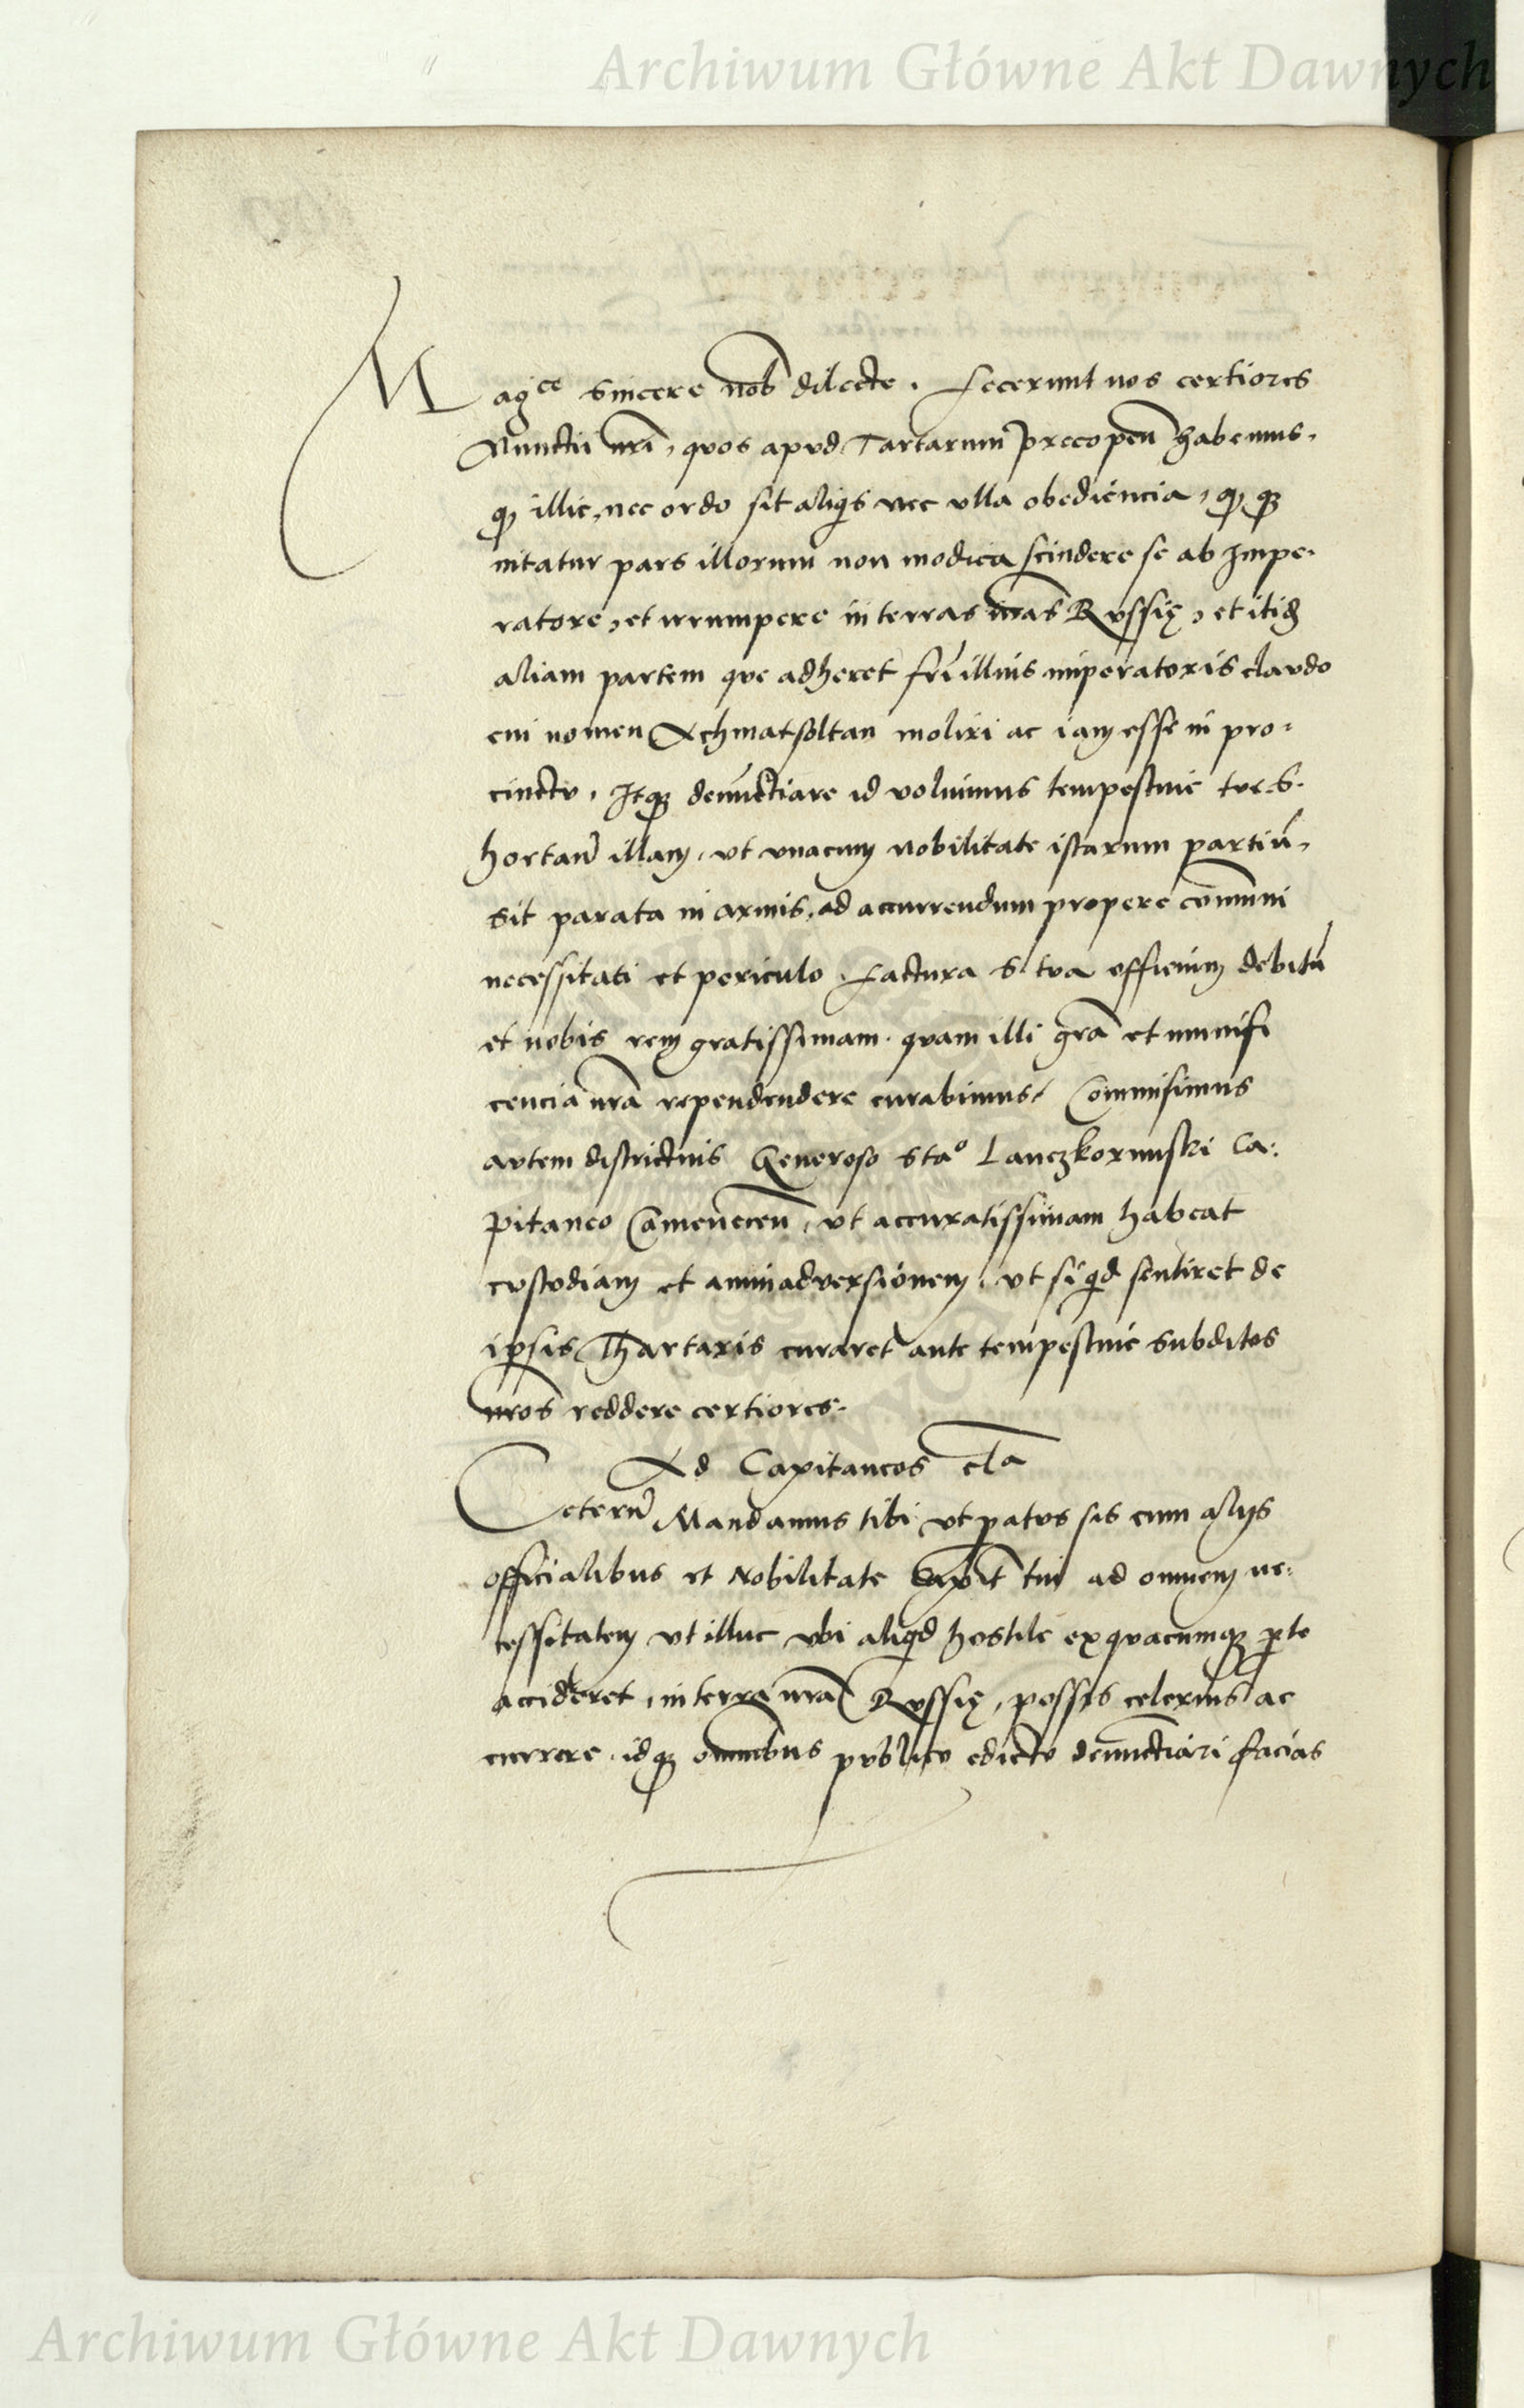 Archiwum Główne Akt Dawnych
Magce sincere nob dilecte. Fecerunt nos certiores
Nunctii nri, quos apud Tartarum precopen habemus,
q illic, nec ordo sit aliqis nec ulla obediencia, q q
nitatur pars illorum non modica scindere se ab Impe-
ratore, et irrumpere in terras nras Russię, et itid
aliam partem que adheret fri illius imperatoris claudo
cui nomen Achmatsoltan moliri ac iam esse in pro-
cinctu. Itaq denunctiare id voluimus tempestive tue S.
hortan illam, ut unacum nobilitate istarum partiu,
sit parata in armis, ad accurrendum propere communi
necessitati et periculo. Factura S. tua officium debitu
et nobis rem gratissimam. quam illi gra et munifi
cencia nra rependendere curabimus. Commisimus
autem districtius Generoso Stao Lanczkorunski Ca-
pitaneo Camenecen, ut accuratissimam habeat
custodiam et animadversionem, ut si qid sentiret de
ipsis Thartaris curaret ante tempestive subditos
nros reddere certiores.
Ad Capitaneos cla
Ceteru Mandamus tibi ut patus sis cum alijs
officialibus et Nobilitate Capit tui ad omnem ne-
cessitatem ut illuc ubi aliqid hostile ex quacumq pte
accideret, in terra nra Russię, possis celerius ac
currere, idq omnibus publico edicto denunctiari facias
Archiwum Główne Akt Dawnych